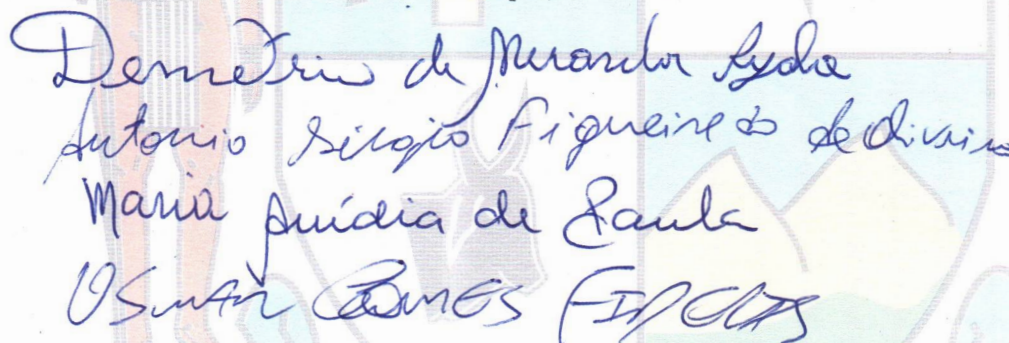 Demetrio de Miranda Ayala
Antonio Sérgio Figueiredo de Oliveira
Maria de Paula
Osmar Gomes Fidelis